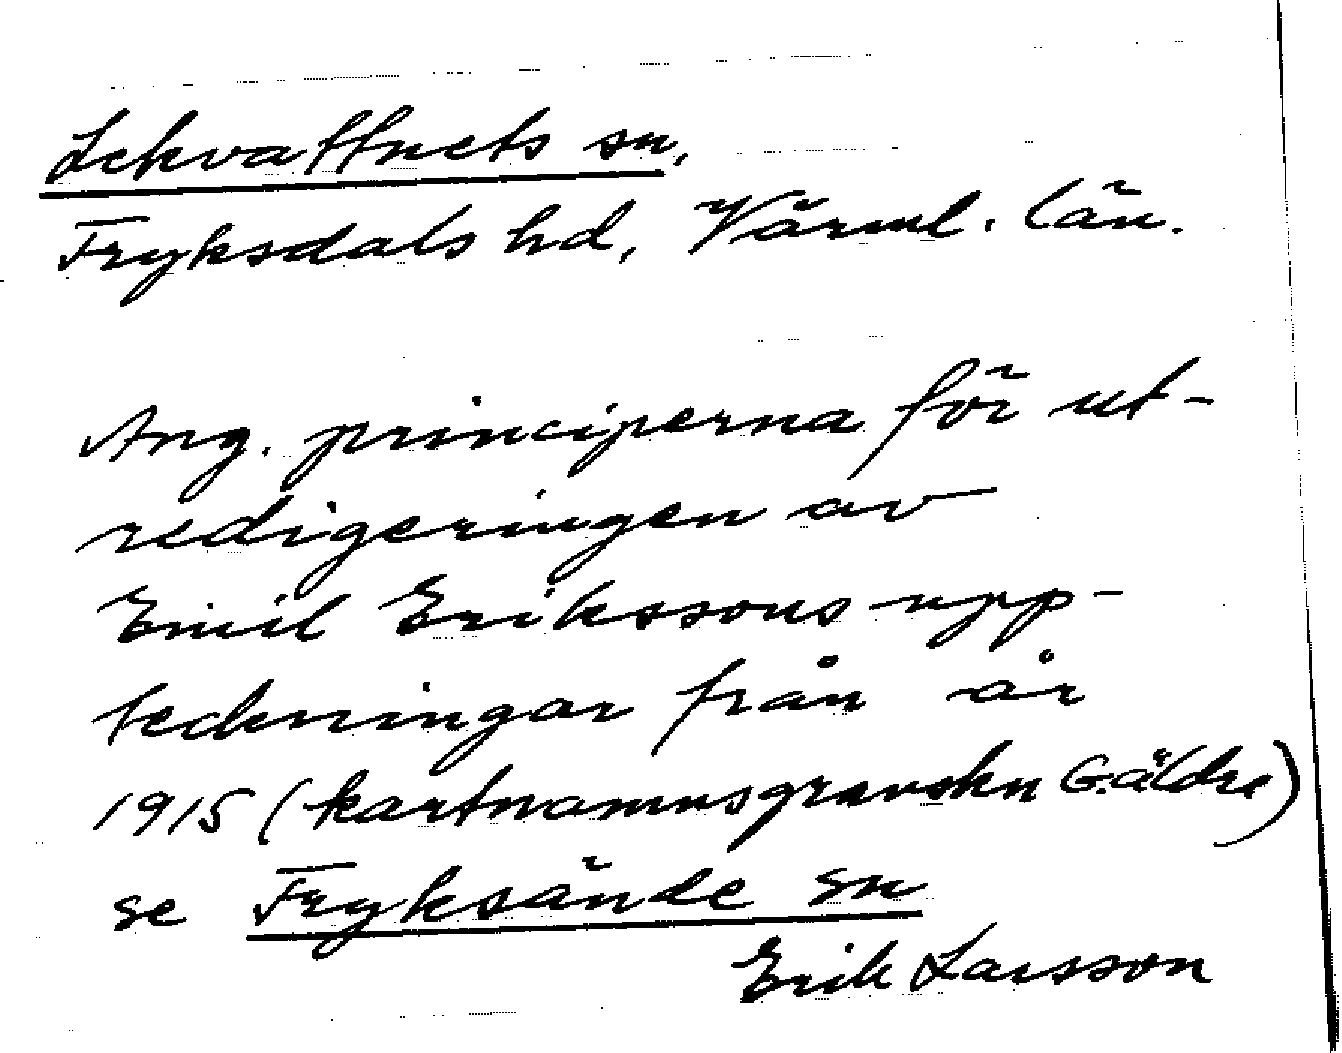 Lekvattnets sn.
Fryksdals hd, Värml. län.
Ang. principerna för ut-
redigeringen av
Emil Erikssons upp-
teckningar från år
1915 (kartnamnsgranskn G. äldre)
se Fryksände sn
Erik Larsson